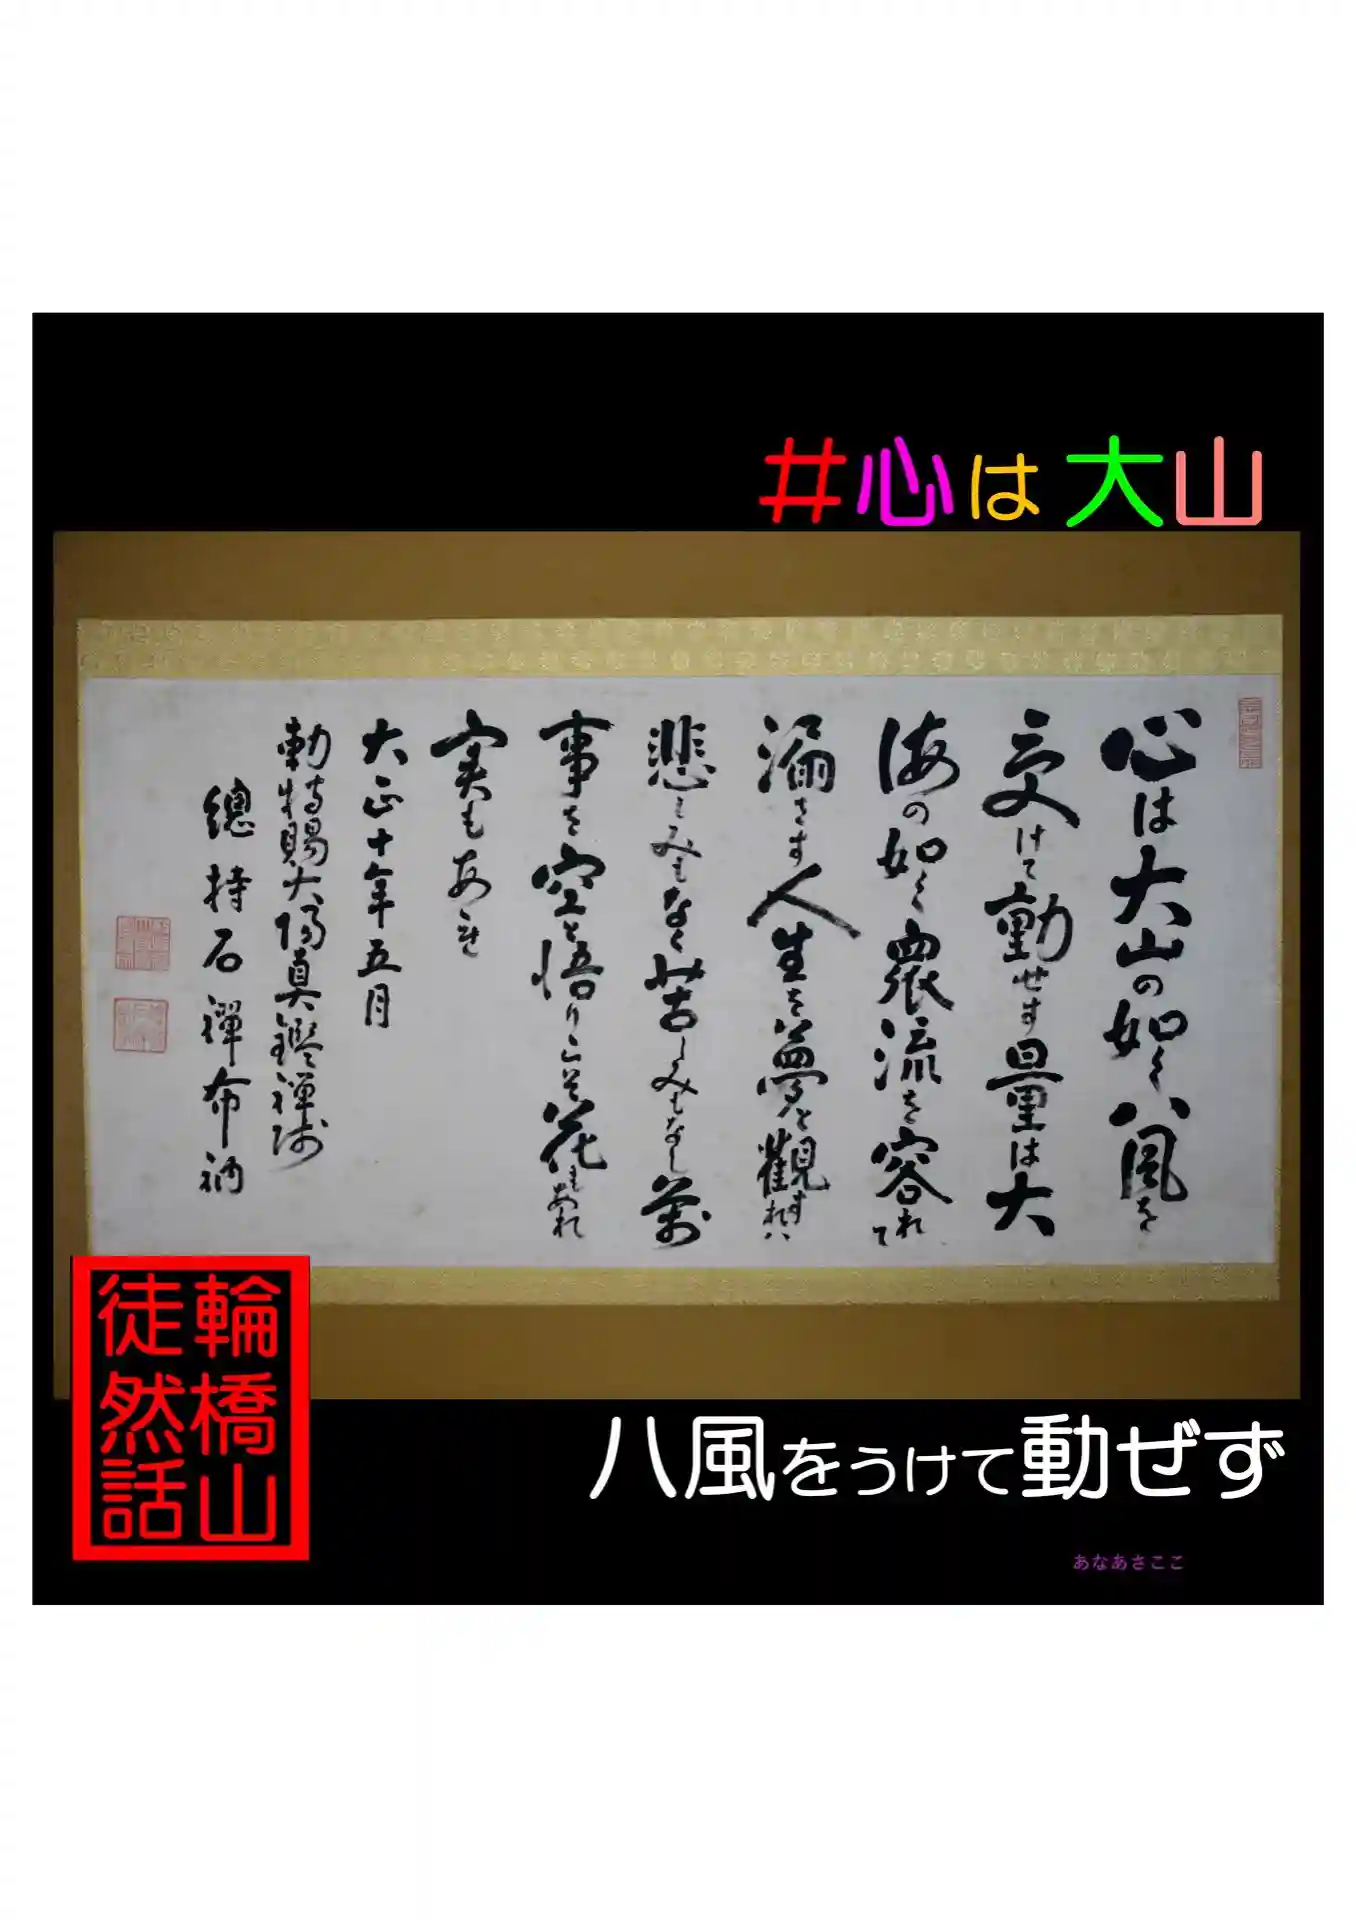 #心は大山
心は大山の如く八風を
受けて動せす量は大
海の如く衆流を容れて
漏さす人生を夢と観すれハ
悲しみもなく苦しみもなし萬
事を空と悟りてこそ花もあれ
実もあれ
大正十年五月
勅特賜大陽真鑑禅師
總持石禅布衲
輪橋山
徒然話
八風をうけて動ぜず
あなあさここ